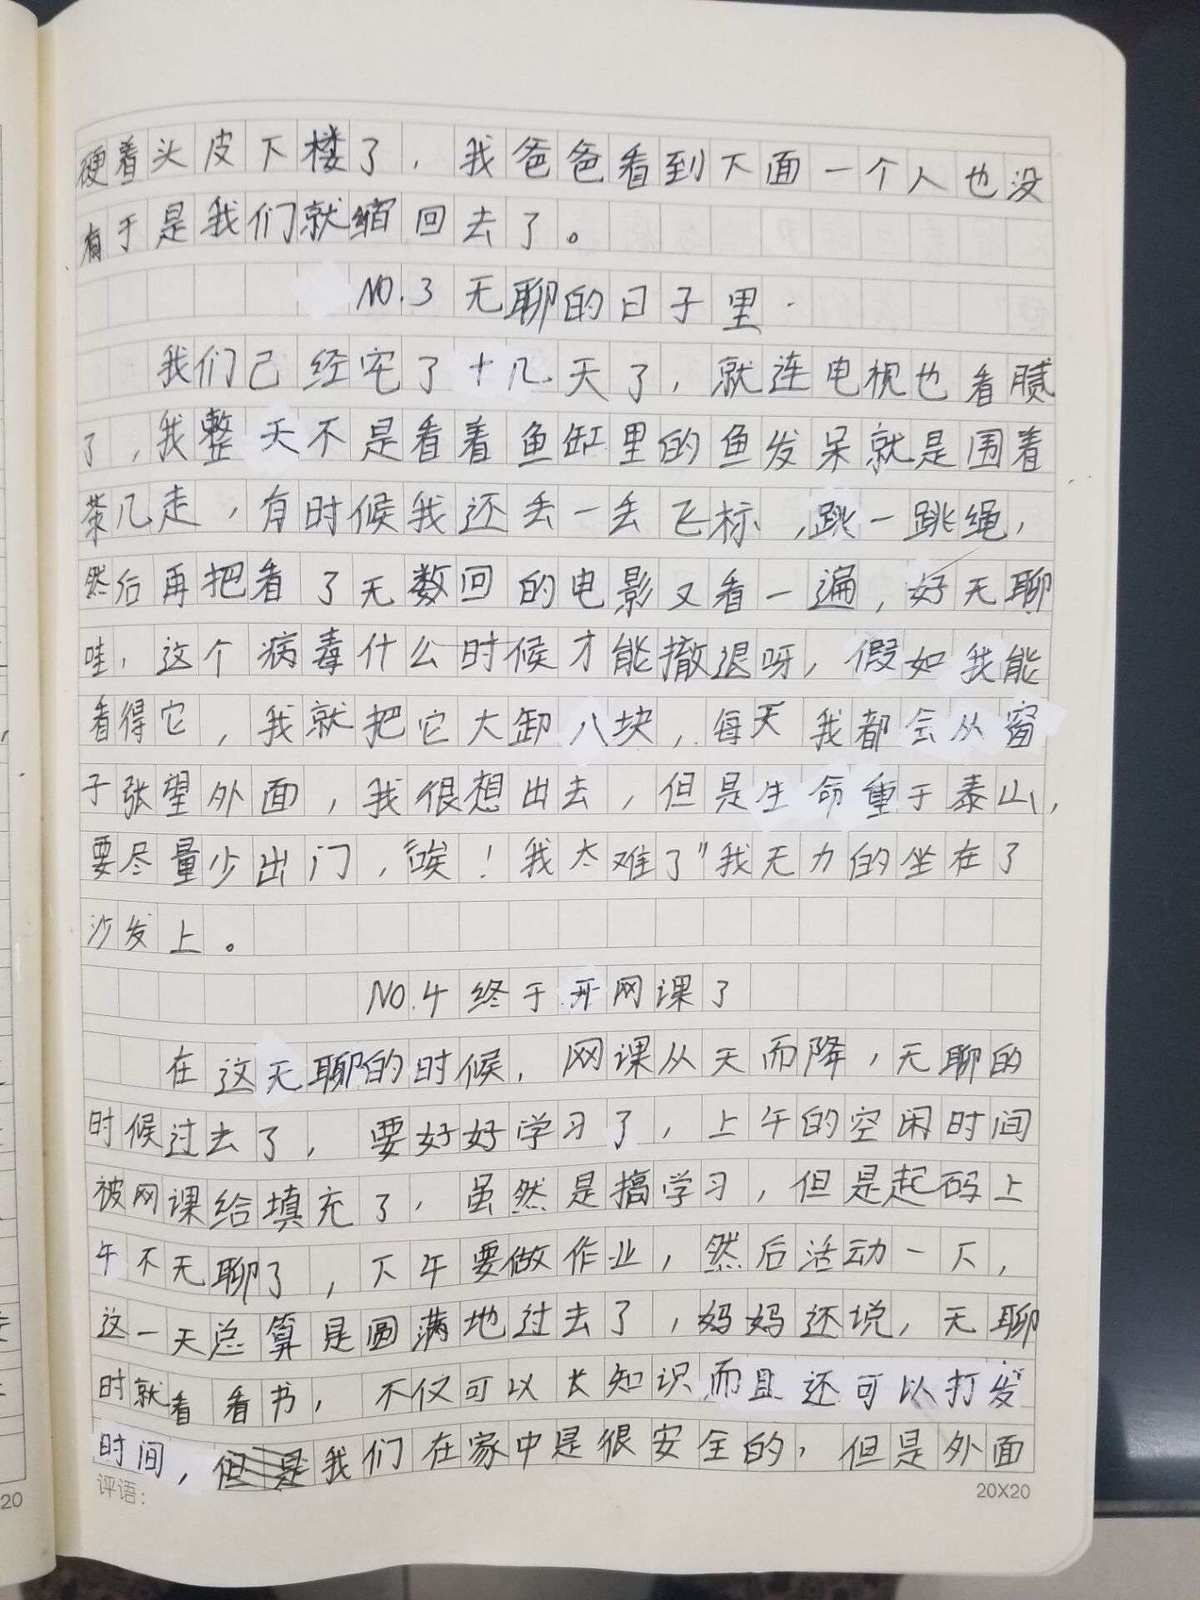 硬着头皮下楼了，我爸爸看到下面一个人也没
有于是我们就缩回去了。
NO.3 无聊的日子里.
我们已经宅了十几天了，就连电视也看腻
了，我整天不是看着鱼缸里的鱼发呆就是围着
茶几走，有时候我还丢一丢飞标，跳一跳绳，
然后再把看了无数回的电影又看一遍，好无聊
哇，这个病毒什么时候才能撤退呀，假如我能
看得它，我就把它大卸八块，每天我都会从窗
子张望外面，我很想出去，但是生命重于泰山，
要尽量少出门，“唉！我太难了”我无力的坐在了
沙发上。
NO.4 终于开网课了
在这无聊的时候，网课从天而降，无聊的
时候过去了，要好好学习了，上午的空闲时间
被网课给填充了，虽然是搞学习，但是起码上
午不无聊了，下午要做作业，然后活动一下，
这一天总算是圆满地过去了，妈妈还说，无聊
时就看看书，不仅可以长知识而且还可以打发
时间，但是我们在家中是很安全的，但是外面
评语：
20X20
20